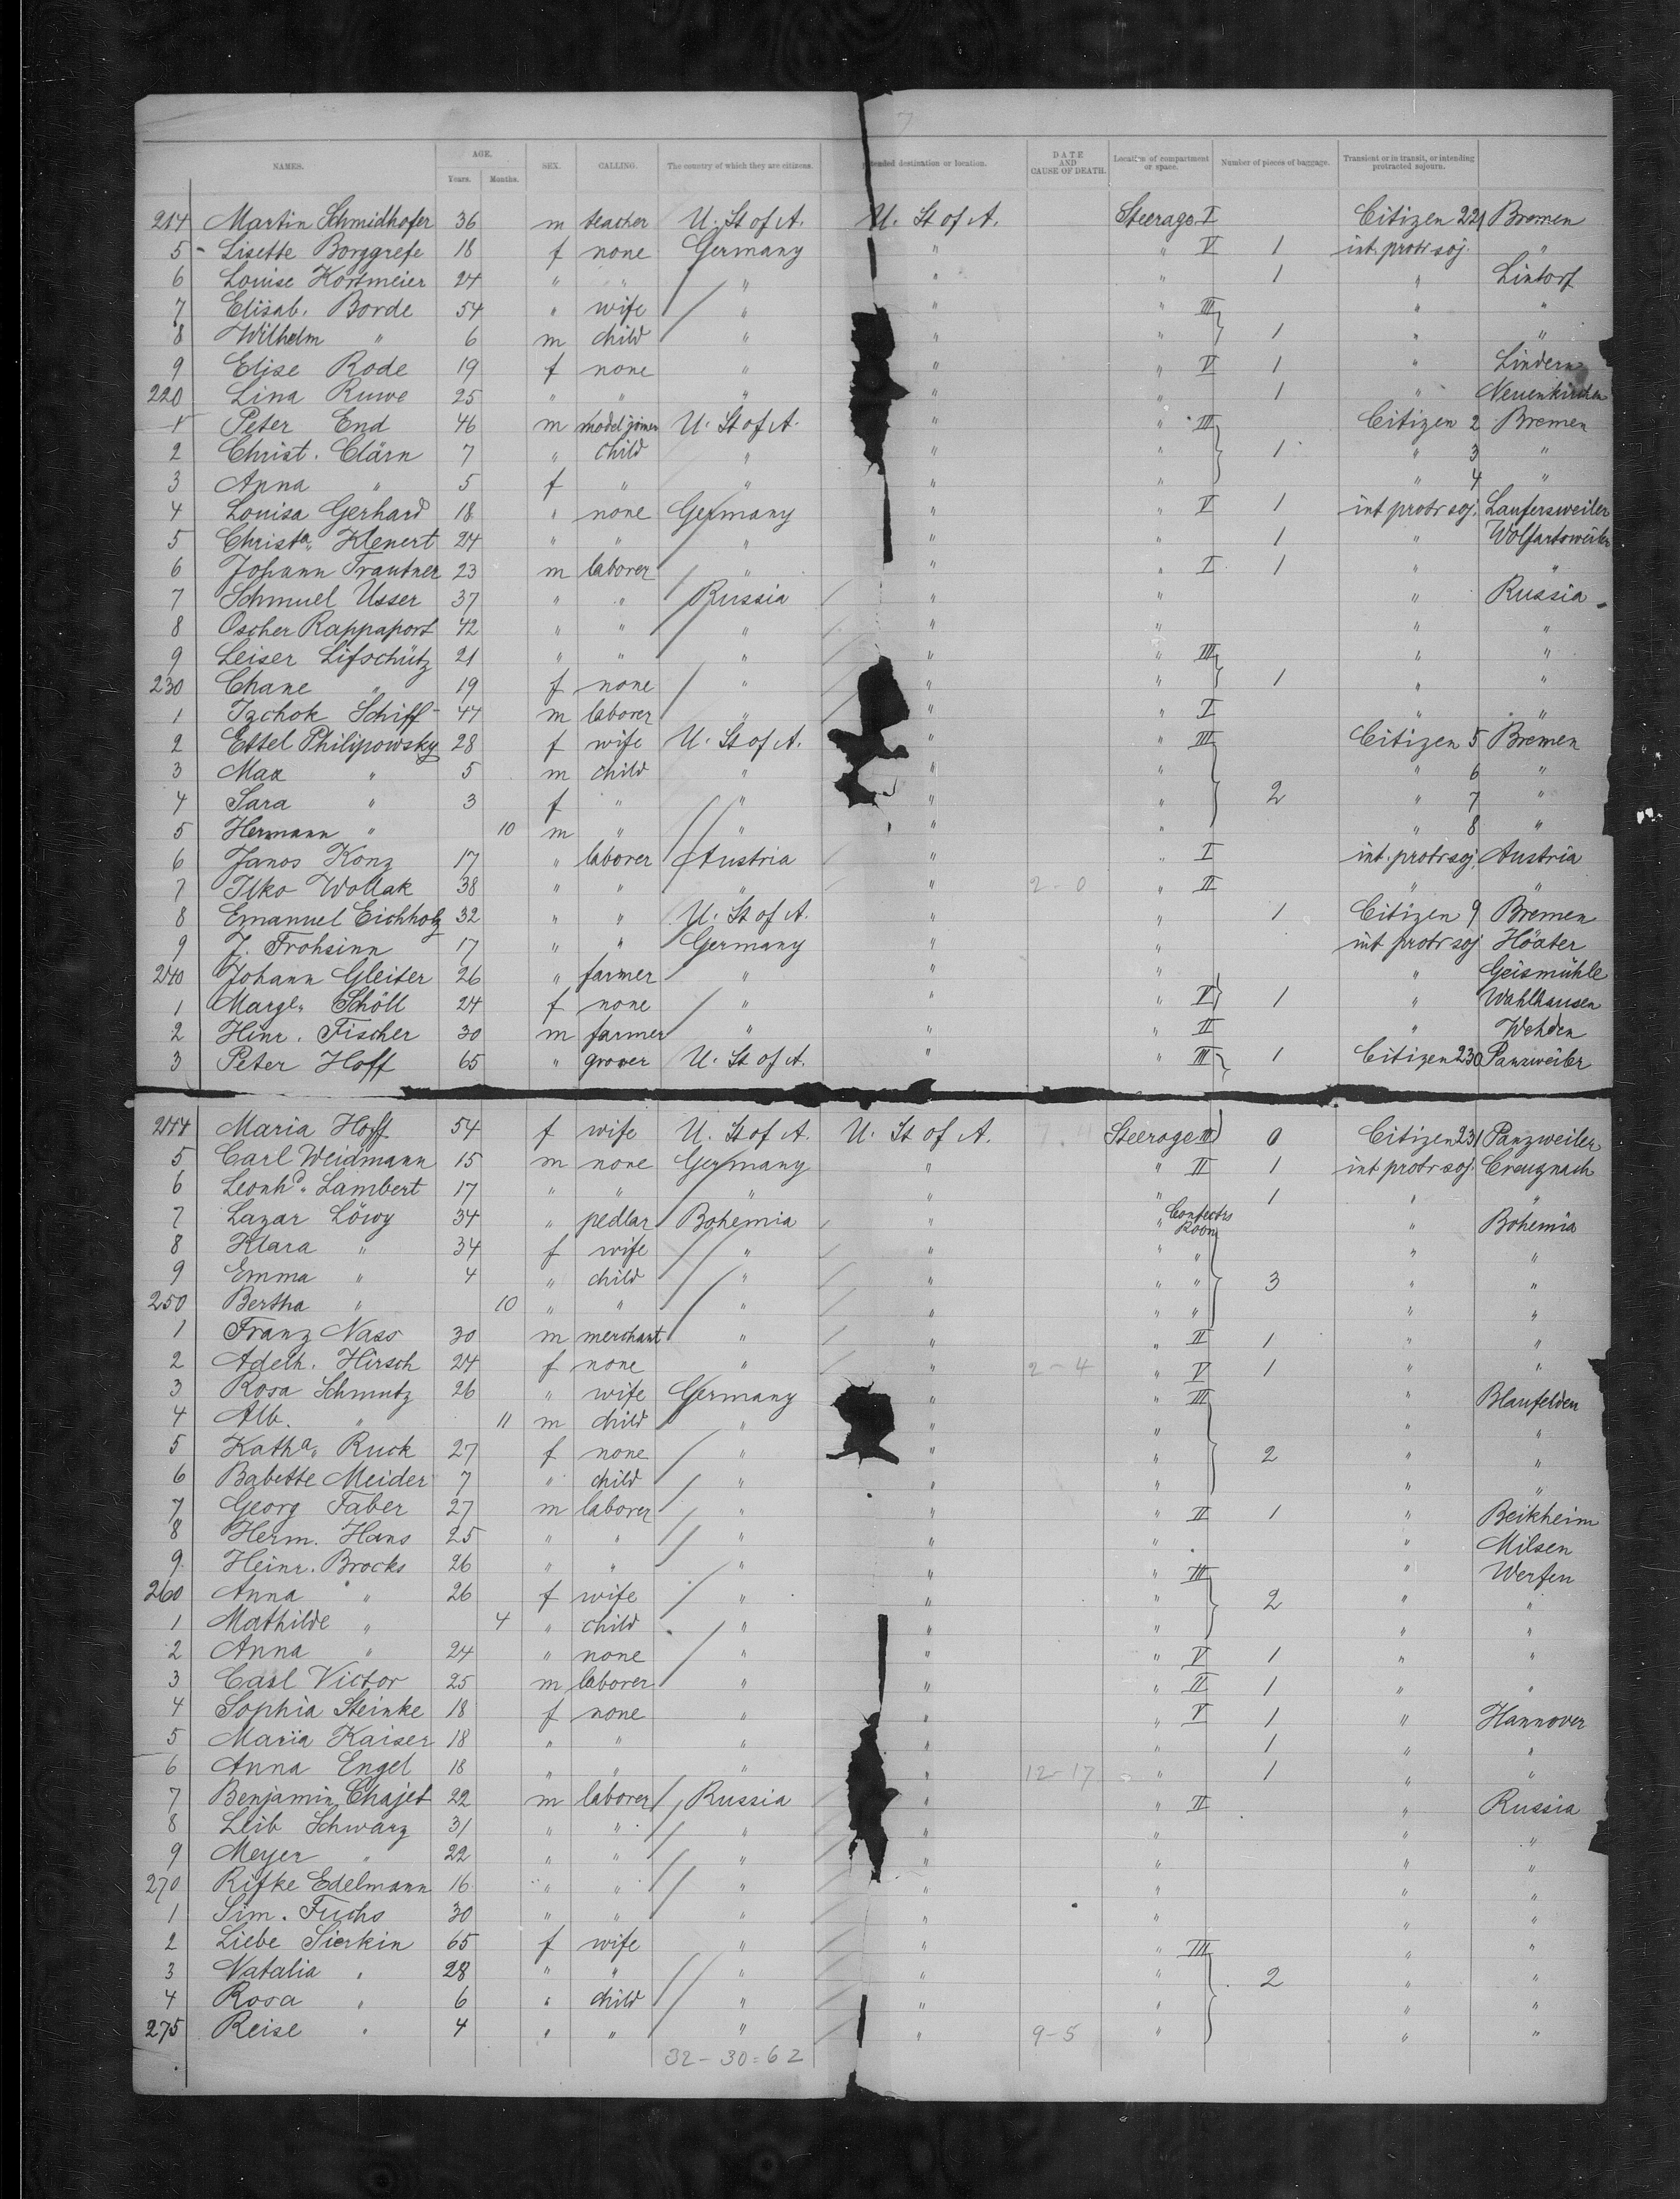 7
NAMES. AGE. Years. Months. SEX. CALLING. The country of which they are citizens. ended destination or location. DATE AND CAUSE OF DEATH. Location of compartment or space. Number of pieces of baggage. Transient or in transit, or intending protracted sojourn.
214 Martin Schmidhofer 36 m teacher U. St of A. U. St of A. Steerage I Citizen 221 Bremen
5 - Lisette Borggrefe 18 f none Germany " " V 1 int. protr soj. "
6 Louise Kortmeier 24 " " " " " 1 " Lintorf
7 Elisab. Borde 54 " wife " " " III " "
8 Wilhelm " 6 m child " " " 1 " "
9 Elise Rode 19 f none " " " V 1 " Lindern
220 Lina Ruwe 25 " " " " " 1 " Neuenkirchen
1 Peter End 46 m model joiner U. St of A. " " III Citizen 2 Bremen
2 Christ. Clärn 7 " child " " " 1 " 3 "
3 Anna " 5 f " " " " " 4 "
4 Louisa Gerhard 18 " none Germany " " V 1 int protr soj. Laufersweiler
5 Christa. Klenert 24 " " " " " 1 " Wolfartsweiler
6 Johann Trautner 23 m laborer " " " I 1 " "
7 Schmuel Usser 37 " " Russia " " " Russia
8 Oscher Rappaport 42 " " " " " " "
9 Leiser Lifschütz 21 " " " " " III " "
230 Chane " 19 f none " " " 1 " "
1 Izchok Schiff 44 m laborer " " " I " "
2 Ettel Philipowsky 28 f wife U. St of A. " " III Citizen 5 Bremen
3 Max " 5 m child " " " " 6 "
4 Sara " 3 f " " " " 2 " 7 "
5 Hermann " 10 m " " " " " 8 "
6 Janos Konz 17 " laborer Austria " " I int. protr soj. Austria
7 Ilko Wollak 38 " " " " 2-0 " II " "
8 Emanuel Eichholz 32 " " U. St of A. " " 1 Citizen 9 Bremen
9 J. Frohsinn 17 " " Germany " " int protr soj Höxter
240 Johann Gleiter 26 " farmer " " " " Geismühle
1 Marge. Schöll 24 f none " " " V 1 " Wahlhausen
2 Hinr. Fischer 30 m farmer " " " II " Wehden
3 Peter Hoff 65 " grocer U. St of A. " " III 1 Citizen 230 Panzweiler
244 Maria Hoff 54 f wife U. St of A. U. St of A. Steerage III 0 Citizen 231 Panzweiler
5 Carl Weidmann 15 m none Germany " " II 1 int protr soj. Creuznach
6 Leonhd. Lambert 17 " " " " " 1 " "
7 Lazar Löwy 34 " pedlar Bohemia " " Confectrs Room " Bohemia
8 Klara " 34 f wife " " " " " "
9 Emma " 4 " child " " " " 3 " "
250 Bertha " 10 " " " " " " " "
1 Franz Nass 30 m merchant " " " II 1 " "
2 Adelh. Hirsch 24 f none " " 2-4 " V 1 " "
3 Rosa Schmutz 26 " wife Germany " " III " Blaufelden
4 Alb. " 11 m child " " " " "
5 Katha. Ruck 27 f none " " " 2 " "
6 Babette Meider 7 " child " " " " "
7 Georg Faber 27 m laborer " " " II 1 " Beikheim
8 Herm. Hans 25 " " " " " " Milsen
9 Heinr. Brocks 26 " " " " " III " Werfen
260 Anna " 26 f wife " " " 2 " "
1 Mathilde " 4 " child " " " " "
2 Anna " 24 " none " " " V 1 " "
3 Carl Victor 25 m laborer " " " II 1 " "
4 Sophia Steinke 18 f none " " " V 1 " Hannover
5 Maria Kaiser 18 " " " " " 1 " "
6 Anna Engel 18 " " " " 12-17 " 1 " "
7 Benjamin Chajet 22 m laborer Russia " " II " Russia
8 Leib Schwarz 31 " " " " " " "
9 Meyer " 22 " " " " " " "
270 Rifke Edelmann 16 " " " " " " "
1 Sim. Fuchs 30 " " " " " " "
2 Liebe Sierkin 65 f wife " " " III " "
3 Natalia " 28 " " " " " 2 " "
4 Rosa " 6 " child " " " " "
275 Reise " 4 " " " " 9-5 " " "
32-30=62